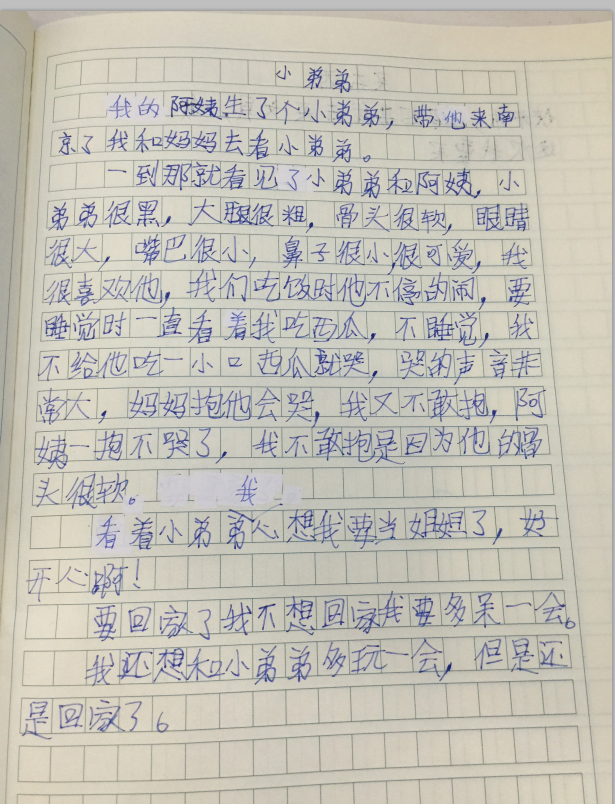 小弟弟
我的阿姨生了个小弟弟，带他来南
京了我和妈妈去看小弟弟。
一到那就看见了小弟弟和阿姨，小
弟弟很黑，大腿很粗，骨头很软，眼睛
很大，嘴巴很小，鼻子很小，很可爱，我
很喜欢他，我们吃饭时他不停的闹，要
睡觉时一直看着我吃西瓜，不睡觉，我
不给他吃一小口西瓜就哭，哭的声音非
常大，妈妈抱他会哭，我又不敢抱，阿
姨一抱不哭了，我不敢抱是因为他的骨
头很软。 我
看着小弟弟心想我要当姐姐了，好
开心啊！
要回家了我不想回家我要多呆一会。
我还想和小弟弟多玩一会，但是还
是回家了。